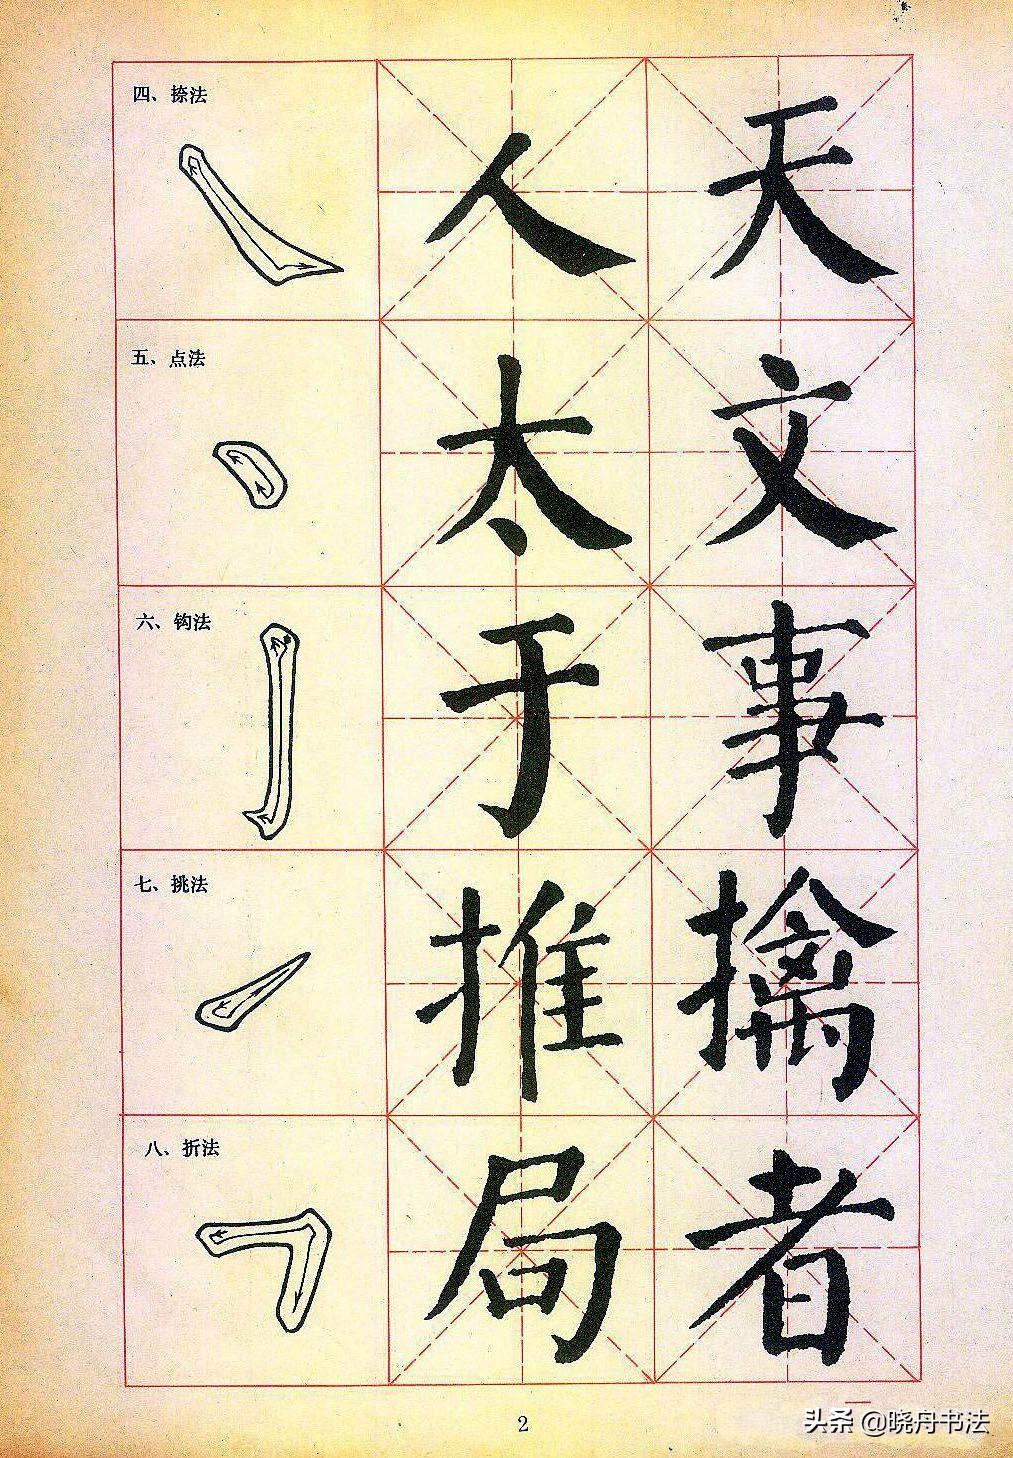 四、捺法
人 天
五、点法
太 文
六、钩法
于 事
七、挑法
推 擒
八、折法
局 者
2
头条 @晓舟书法